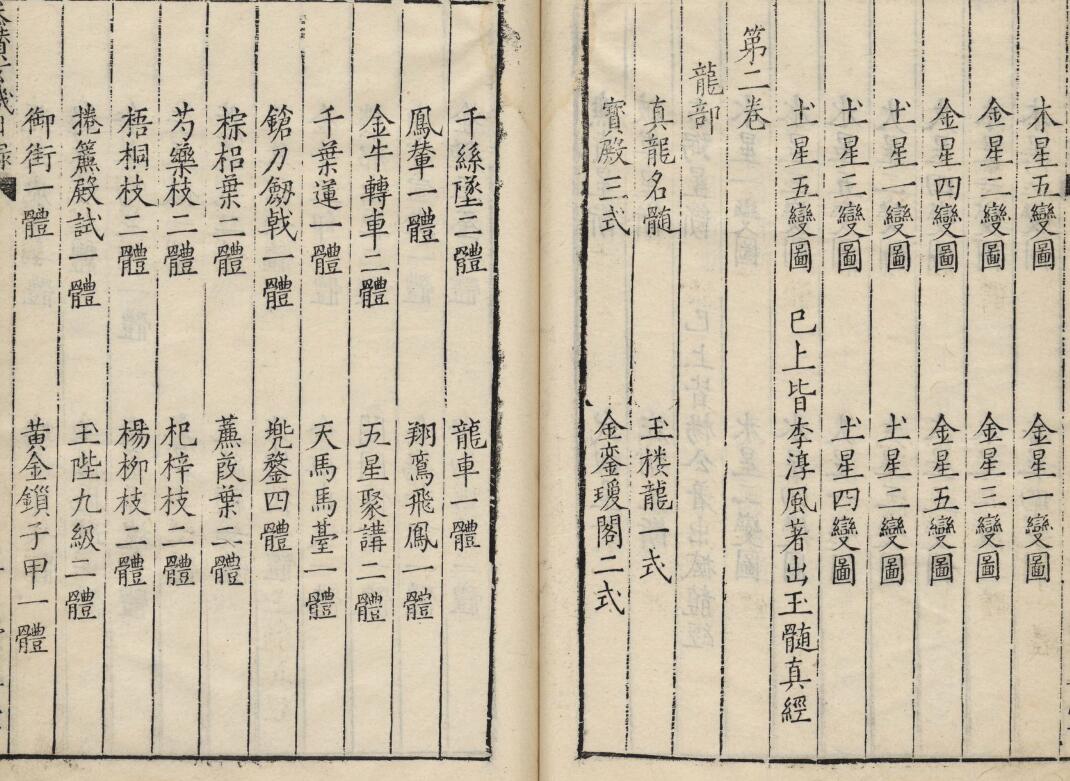 木星五變圖　金星一變圖
金星二變圖　金星三變圖
金星四變圖　金星五變圖
圡星一變圖　圡星二變圖
圡星三變圖　圡星四變圖
圡星五變圖　巳上皆李淳風著出玉髓真經
第二卷
龍部
真龍名髓　玉楼龍一式
寳殿三式　金鑾瓊閣二式
千絲墜二體　龍車一體
鳳輦一體　翔鸞飛鳳一體
金牛轉車二體　五星聚講二體
千葉蓮一體　天馬馬臺一體
鎗刀劒戟一體　兠鍪四體
棕梠葉二體　葉二體
芍藥枝二體　杞梓枝二體
梧桐枝二體　楊柳枝二體
捲簾殿試一體　玉陛九級二體
御街一體　黃金鎖子甲一體